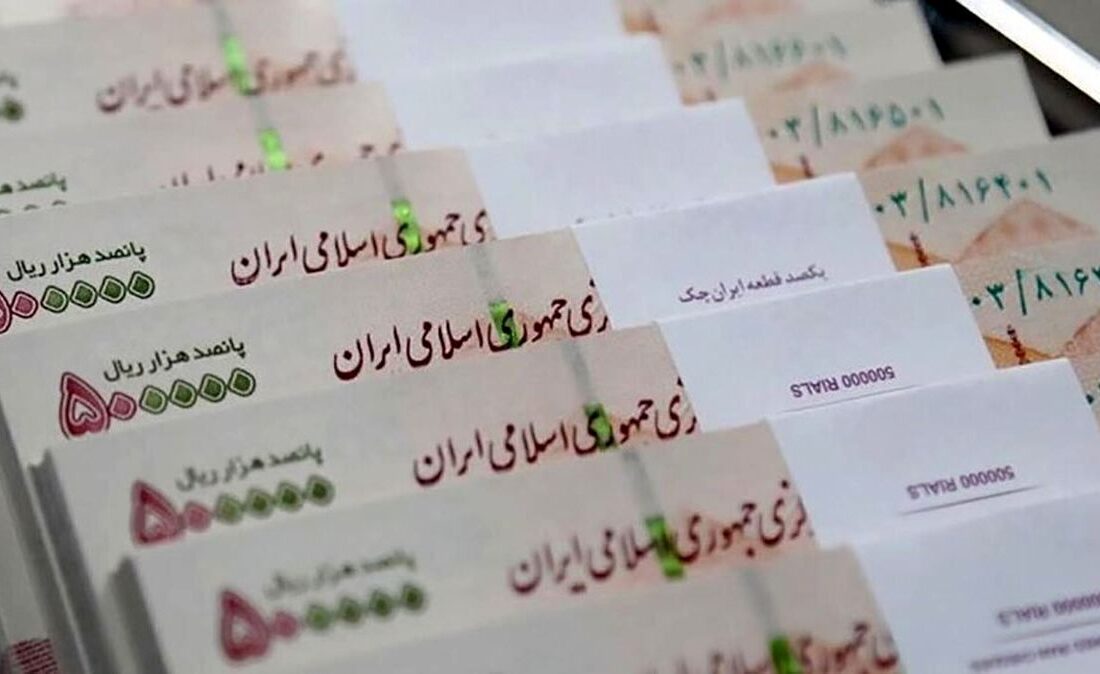 جمهوری اسلامی ایران
۰۳/۸۱۶۶۰۱
۰۳/۸۱۶۵۰۱
پانصد هزار ریال
۵۰۰۰۰۰
جمهوری اسلامی ایران
۰۳/۸۱۶۴۰۱
یکصد قطعه ایران چک
پانصد هزار ریال
۵۰۰۰۰۰
زی جمهوری اسلامی ایران
۰۳/۸۱۶
500000 RIALS
پانصد هزار ریال
۵۰۰۰۰۰
زی جمهوری اسلامی ایران
500000 RIALS
پانصد هزار ریال
۵۰۰۰۰۰
زی جمهوری اسلامی ایران
500000 RIALS
جمهوری